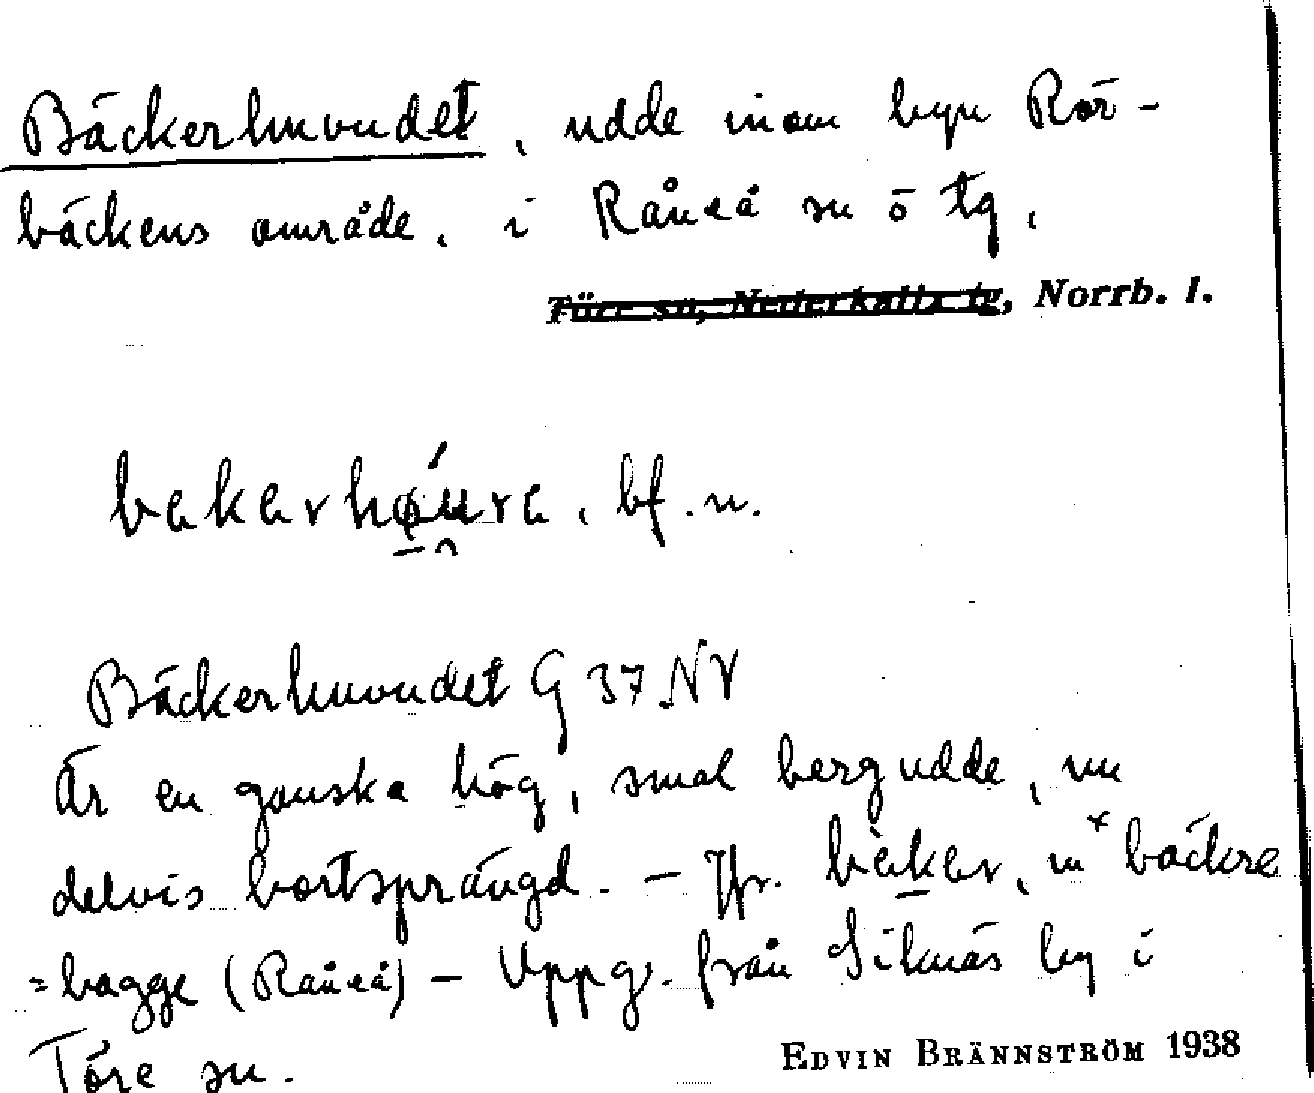 Bäckerhuvudet, udde inom byn Rör-
bäckens område, i Råneå sn ö tg,
Töre sn, Nederkalix tg, Norrb. l.
bekerhǿu̯re, bf. n.
Bäckerhuvudet G 37 NV
Är en ganska hög, smal bergudde, nu
delvis bortsprängd. – Jfr. bèker, m × bäckre
= bagge (Råneå) – Uppg. från Siknäs by i
Töre sn.
EDVIN BRÄNNSTRÖM 1938